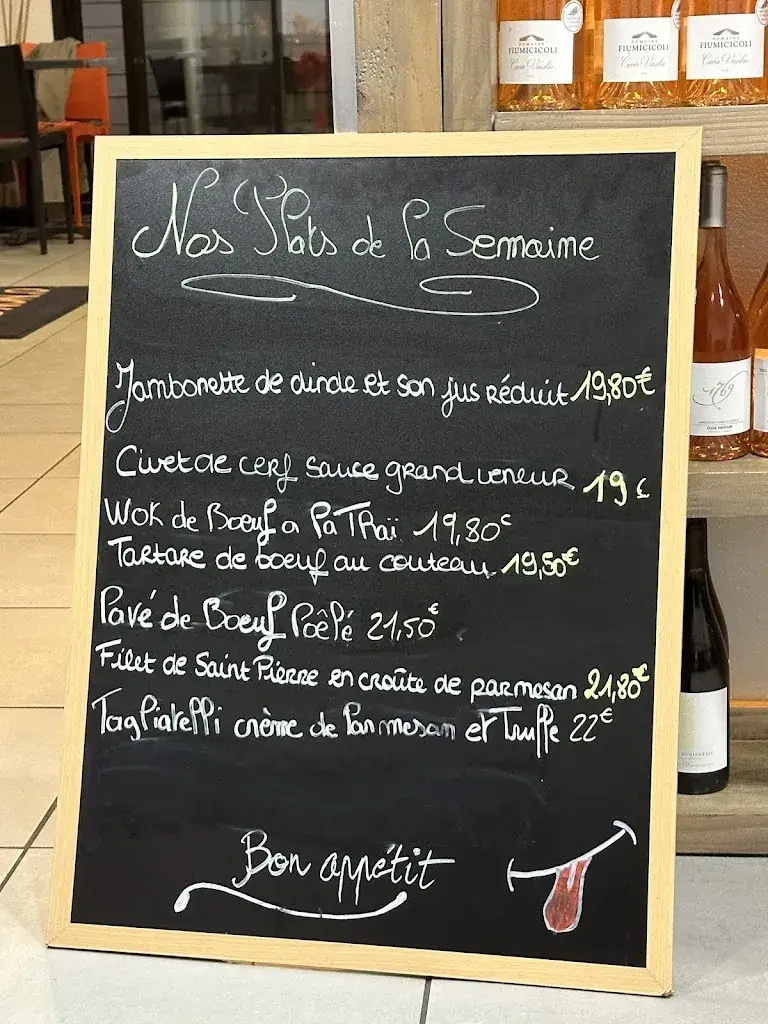 DOMAINE
FIUMICICOLI
Cuvée Vassilia
DOMAINE
FIUMICICOLI
DOMAINE
FIUMICICOLI
Nos Plats de la Semaine
Jambonette de dinde et son jus réduit 19,80€
Civet de cerf sauce grand veneur 19€
Wok de Boeuf a la Thaï 19,80€
Tartare de boeuf au couteau 19,50€
Pavé de Boeuf Poêlé 21,50€
Filet de Saint Pierre en croûte de parmesan 21,80€
Tagliatelli crème de Parmesan et Truffe 22€
Bon appétit
1769